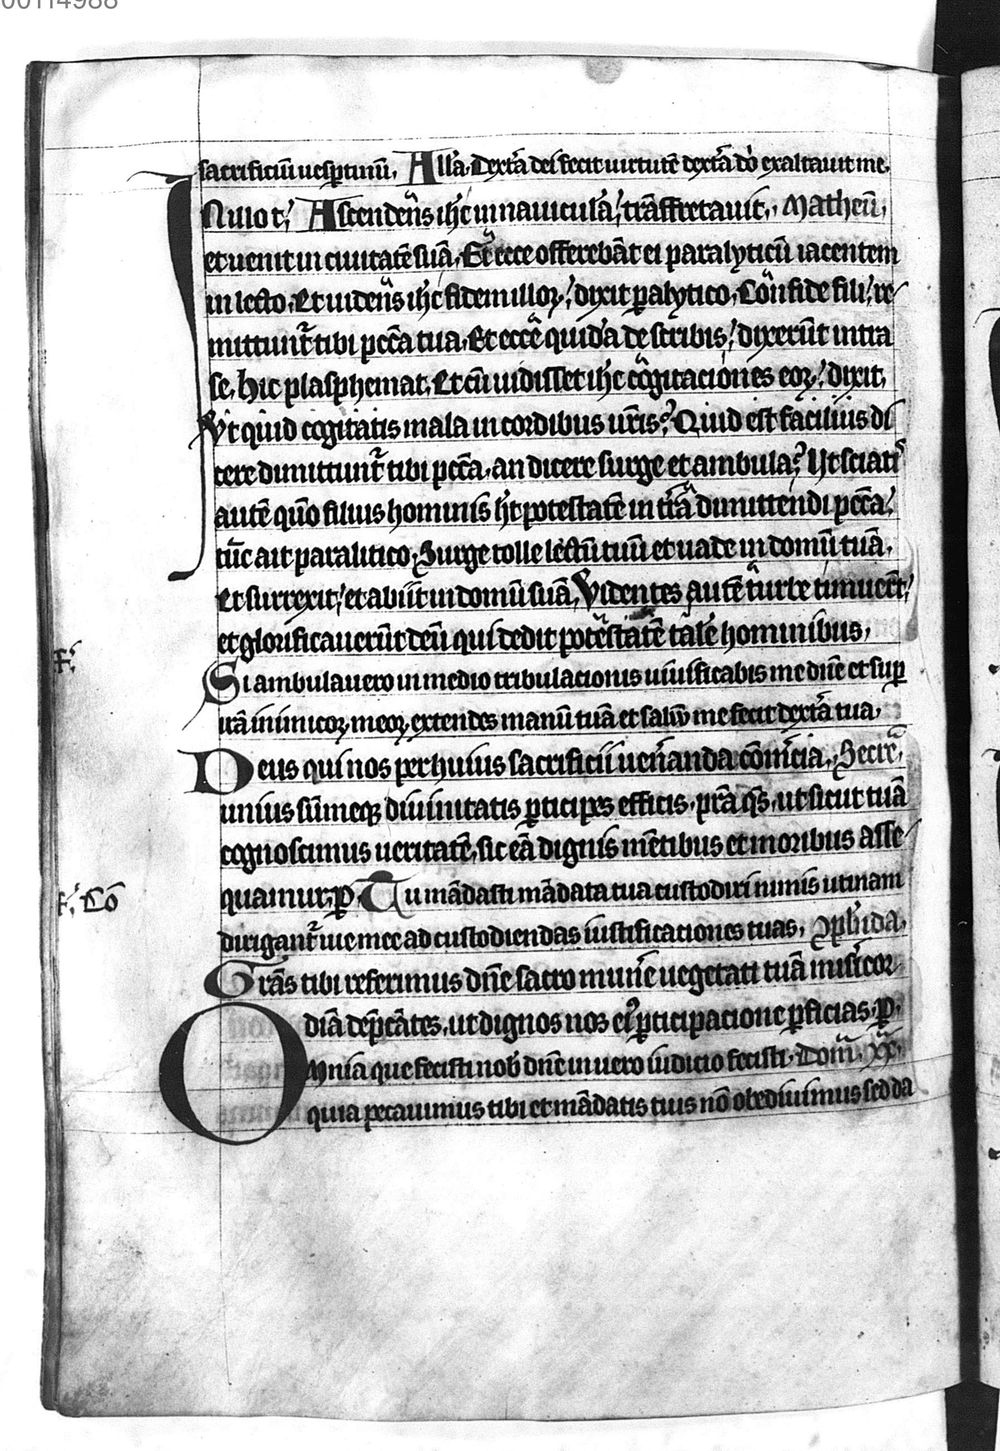 00114988
sacrificiū uesp̄tinū. All̄a. Dext̄a dei fecit uirtutē dext̄a dn̄i exaltauit me.
In illo t̄. Ascendens ih̄c in nauicula, trāsfretauit. Matheū.
et uenit in ciuitatē suā. Et ecce offerebāt ei paralyticū iacentem
in lecto. Et uidens ih̄c fidem illoꝝ, dixit ꝑalytico. Confide fili, re
mittunt̄ tibi pcc̄a tua. Et ecce quidā de scribis, dixerūt intra
se. Hic plasphemat. Et cū uidisset ih̄c cogitaciones eoꝝ, dixit.
Vt quid cogitatis mala in cordibus ur̄is? Quid est facilius di
cere dimittunt̄ tibi pcc̄a, an dicere surge et ambula? Ut sciatis
autē qūo filius hominis h̄t potestatē in tr̄a dimittendi pcc̄a,
tūc ait paralitico. Surge tolle lectū tuū et uade in domū tuā.
Et surrexit, et abiit in domū suā. Videntes autē turbe timuer̄t,
et glorificauerūt deū qui dedit potestatē talē hominibus.
F̄.
Si ambulauero in medio tribulacionis uiuificabis me dn̄e et sup̄
irā inimicoꝝ meoꝝ extendes manū tuā et saluū me fecit dext̄a tua.
Deus qui nos per huius sacrificii uen̄anda com̄cia. Secre.
unius sūmeq; diuinitatis ꝑticipes efficis, pr̄a q̄s, ut sicut tuā
cognoscimus ueritatē, sic eā dignis mētibus et moribus asse
F̄. Cō
quamur. P̄. Tu mādasti mādata tua custodiri nimis utinam
dirigant̄ uie mee ad custodiendas iustificationes tuas.
Gr̄as tibi referimus dn̄e sacro mun̄e uegetati tuā mis̄icor
diā dep̄cātes, ut dignos nos ei' ꝑticipacione ꝑficias. P̄.
Omnia que fecisti nob̄ dn̄e in uero iudicio fecisti. Dom̄. XX.
quia peccauimus tibi et mādatis tuis nō obediuimus sed da